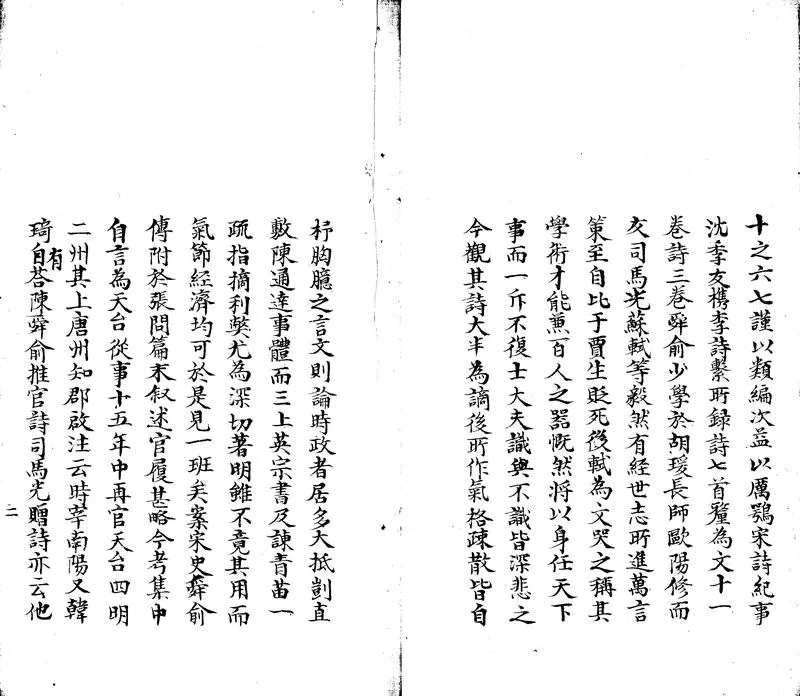 十之六七謹以類編次益以厲鶚宋詩紀事
沈季友檇李詩繫所録詩七首釐為文十一
卷詩三卷舜俞少學於胡瑗長師歐陽修而
友司馬光蘇軾等毅然有經世志所進萬言
策至自比于賈生貶死後軾為文哭之稱其
學術才能兼百人之器慨然將以身任天下
事而一斥不復士大夫識與不識皆深悲之
今觀其詩大半為謫後所作氣格疎散皆自
抒胸臆之言文則論時政者居多大抵剴直
敷陳通達事體而三上英宗書及諫青苗一
疏指摘利弊尤為深切著明雖不竟其用而
氣節經濟均可於是見一班矣案宋史舜俞
傳附於張問篇末叙述官履甚略今考集中
自言為天台從事十五年中再官天台四明
二州其上唐州知郡啟注云時宰南陽又韓
琦有自荅陳舜俞推官詩司馬光贈詩亦云他
二